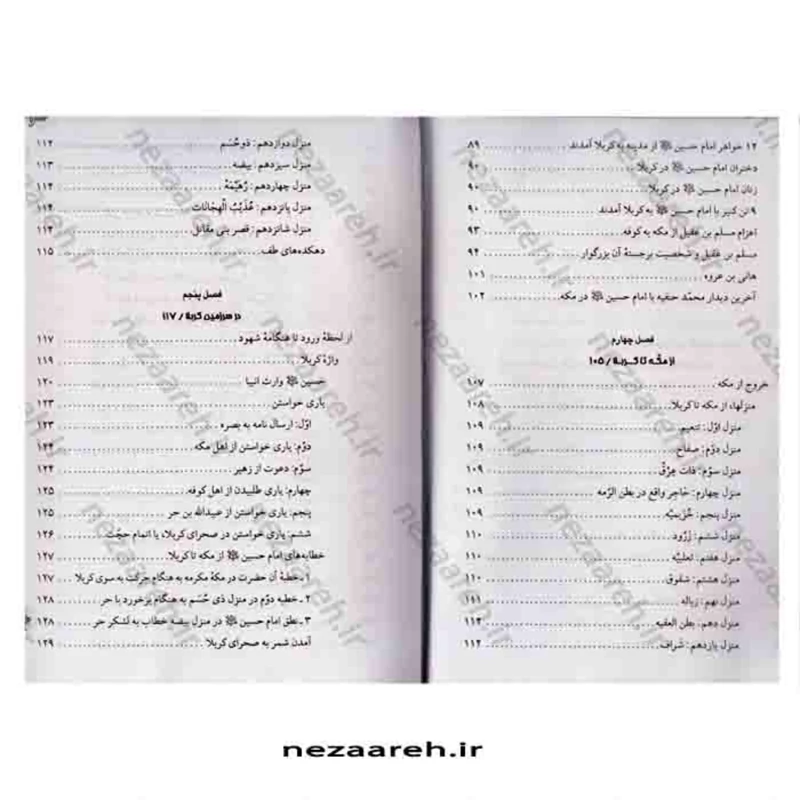 ۱۲ خواهر امام حسین ﷺ از مدینه به کربلا آمدند ۸۹
دختران امام حسین ﷺ در کربلا ۹۰
زنان امام حسین ﷺ در کربلا ۹۰
۹ تن کنیز با امام حسین ﷺ به کربلا آمدند ۹۰
اعزام مسلم بن عقیل از مکه به کوفه ۹۳
مسلم بن عقیل و شخصیت برجستهٔ آن بزرگوار ۹۴
هانی بن عروه ۱۰۱
آخرین دیدار محمّد حنفیه با امام حسین ﷺ در مکه ۱۰۲
فصل چهارم
از مکّه تا کربلا / ۱۰۵
خروج از مکه ۱۰۷
منزلها، از مکه تا کربلا ۱۰۸
منزل اوّل: تنعیم ۱۰۹
منزل دوّم: صفاح ۱۰۹
منزل سوّم: ذات عِرْقْ ۱۰۹
منزل چهارم: حٰاجِر واقع در بطن الرّمه ۱۰۹
منزل پنجم: خُزَیمیّه ۱۰۹
منزل ششم: زَرُود ۱۱۰
منزل هفتم: ثعلبیّه ۱۱۰
منزل هشتم: شقوق ۱۱۰
منزل نهم: زباله ۱۱۱
منزل دهم: بطن العقبه ۱۱۲
منزل یازدهم: شراف ۱۱۲
منزل دوازدهم: ذوحُسَم ۱۱۲
منزل سیزدهم: بیضه ۱۱۳
منزل چهاردهم: رُهَیْمَهْ ۱۱۴
منزل پانزدهم: عُذَیْبُ الْهِجٰانٰات ۱۱۴
منزل شانزدهم: قصر بنی مقاتل ۱۱۴
دهکده‌های طف ۱۱۵
فصل پنجم
در سرزمین کربلا / ۱۱۷
از لحظهٔ ورود تا هنگامهٔ شهود ۱۱۷
واژهٔ کربلا ۱۱۹
حسین ﷺ وارث انبیا ۱۲۰
یاری خواستن ۱۲۳
اوّل: ارسال نامه به بصره ۱۲۳
دوّم: یاری خواستن از اهل مکه ۱۲۴
سوّم: دعوت از زهیر ۱۲۴
چهارم: یاری طلبیدن از اهل کوفه ۱۲۵
پنجم: یاری خواستن از عبیدالله بن حر ۱۲۵
ششم: یاری خواستن در صحرای کربلا، یا اتمام حجّت ۱۲۶
خطابه‌های امام حسین ﷺ از مکه تا کربلا ۱۲۷
۱ ـ خطبهٔ آن حضرت در مکهٔ مکرمه به هنگام حرکت به سوی کربلا ۱۲۷
۲ ـ خطبه دوّم در منزل ذی حُسَم به هنگام برخورد با حر ۱۲۸
۳ ـ نطق امام حسین ﷺ در منزل بیضه خطاب به لشکر حر ۱۲۸
آمدن شمر به صحرای کربلا ۱۲۹
nezaareh.ir